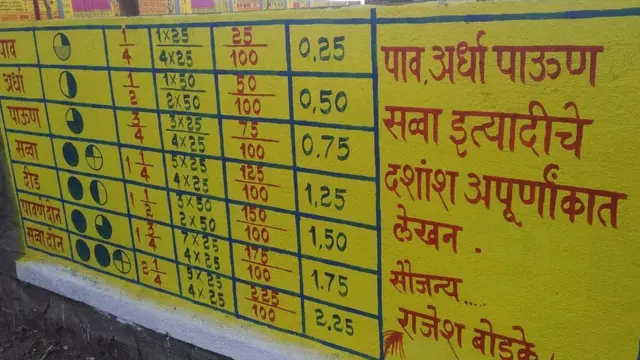 पाव 1/4 1×25/4×25 25/100 0.25
अर्धा 1/2 1×50/2×50 50/100 0.50
पाऊण 3/4 3×25/4×25 75/100 0.75
सव्वा 1 1/4 5×25/4×25 125/100 1.25
दीड 1 1/2 3×50/2×50 150/100 1.50
पावणेदोन 1 3/4 7×25/4×25 175/100 1.75
सव्वा दोन 2 1/4 9×25/4×25 225/100 2.25
पाव, अर्धा पाऊण
सव्वा इत्यादीचे
दशांश अपूर्णांकात
लेखन .
सौजन्य ....
राजेश बोडके